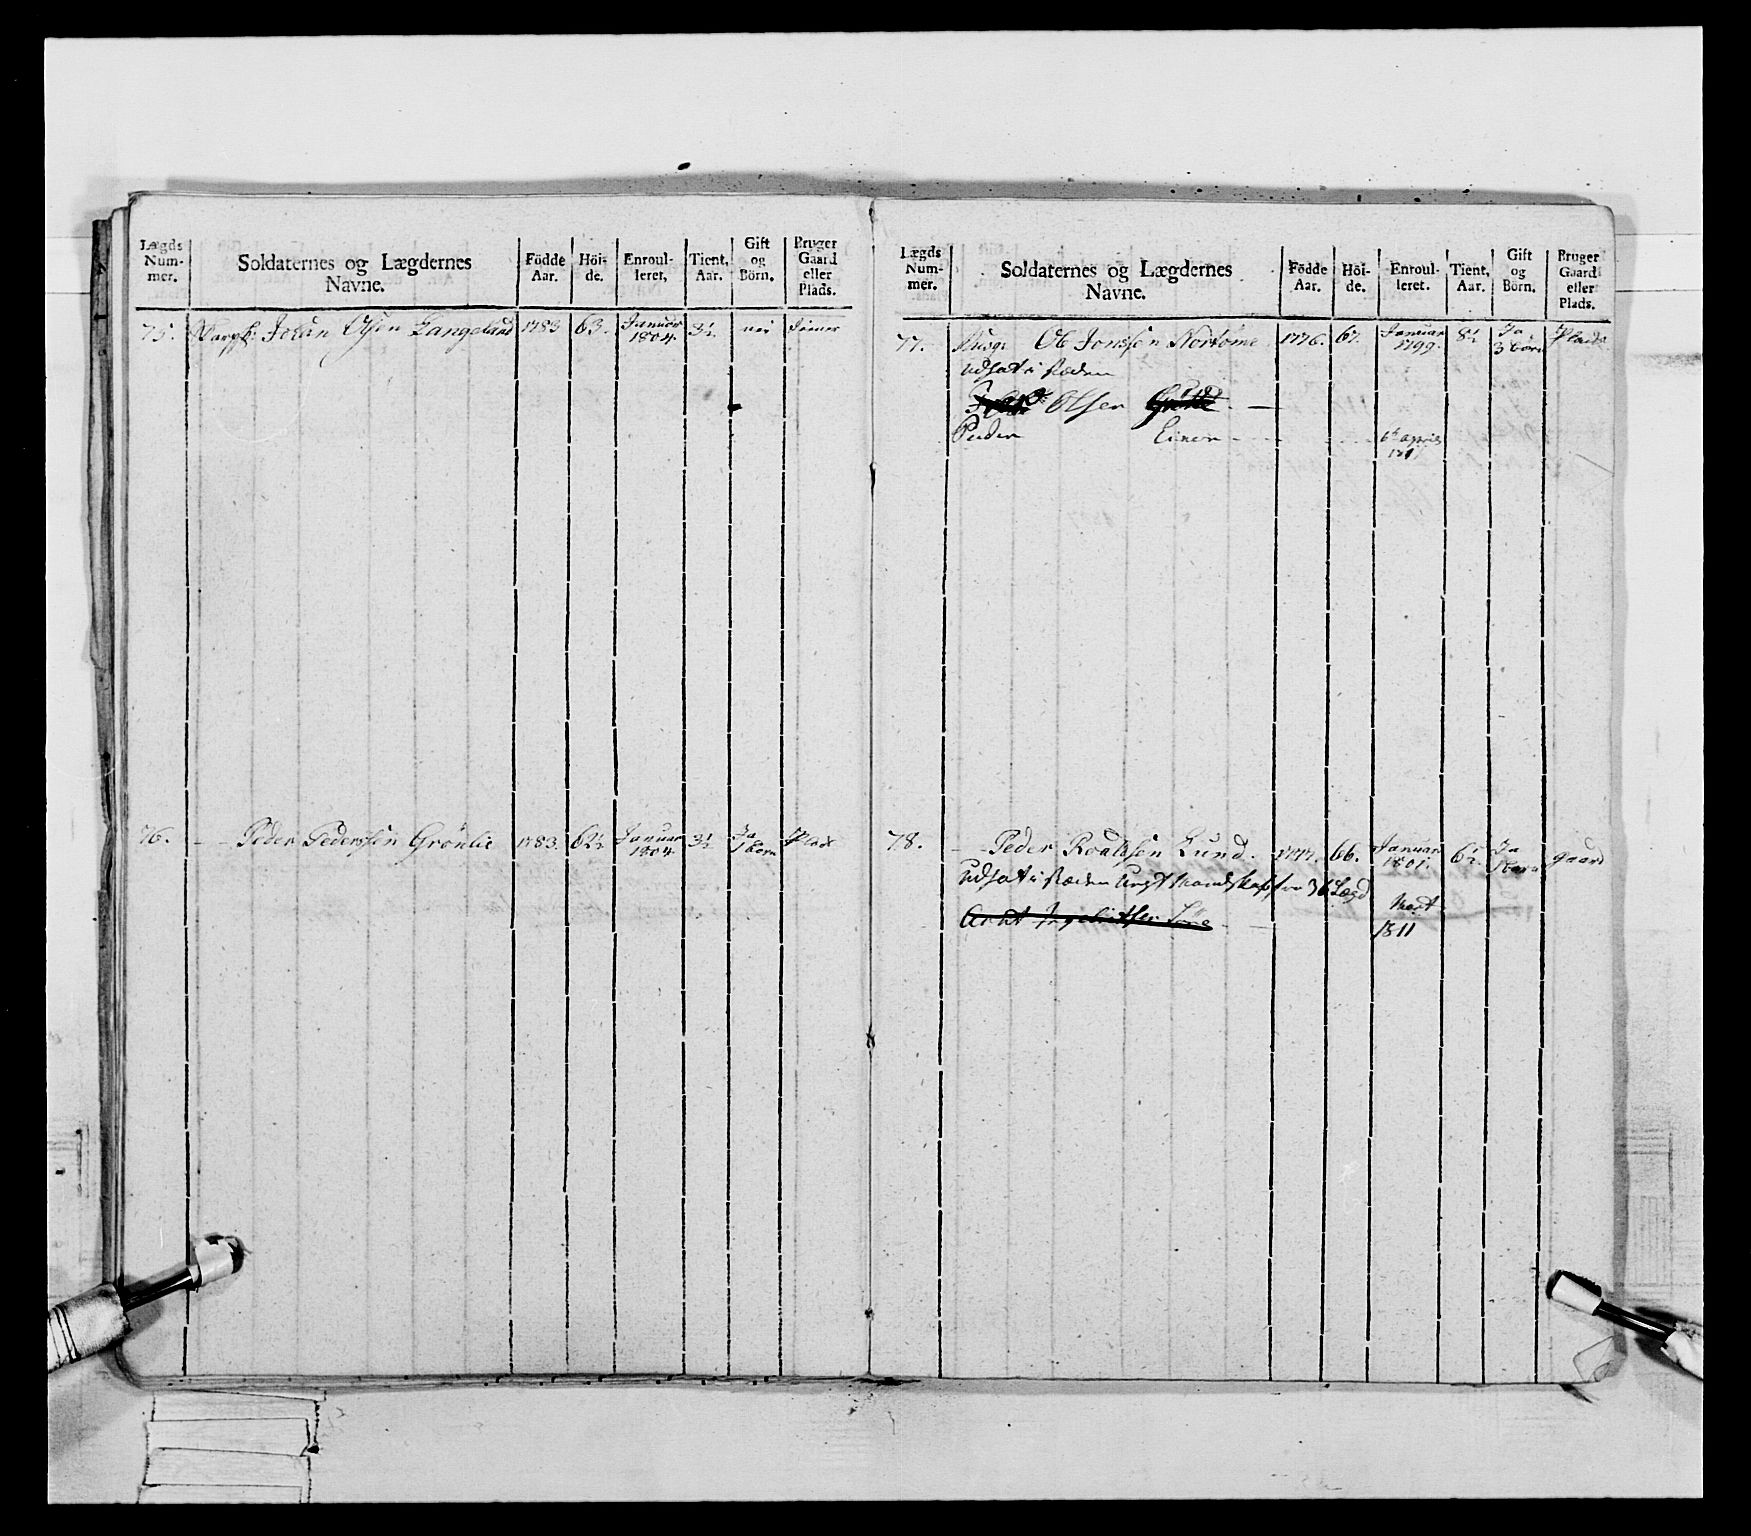 Lægds Num- mer. | Soldaternes og Lægdernes Navne. | Födde Aar. | Höi- de. | Enroul- leret, | Tient, Aar. | Gift og Börn. | Bruger Gaard eller Plads.
75. Johan Olsen Langeland 1783 63. Januar 1804. 3½ nei tiener
76. - - Peder Pedersen Grönlie 1783. 62½ Januar 1804. 3½ Ja 1 barn Plads
Lægds Num- mer. | Soldaternes og Lægdernes Navne. | Födde Aar. | Höi- de. | Enroul- leret. | Tient, Aar. | Gift og Börn. | Bruger Gaard eller Plads.
77. Ole Jonsen 1776. 67. Januar 1799. 8½ Ja 3 börn Plads
udsat i
Olsen
Peder 6te april
78. - - Peder Roaldsen Lund. 66. Januar 1801. 6½ Ja 1 barn gaard
udsat i for 36 Lægd
1811